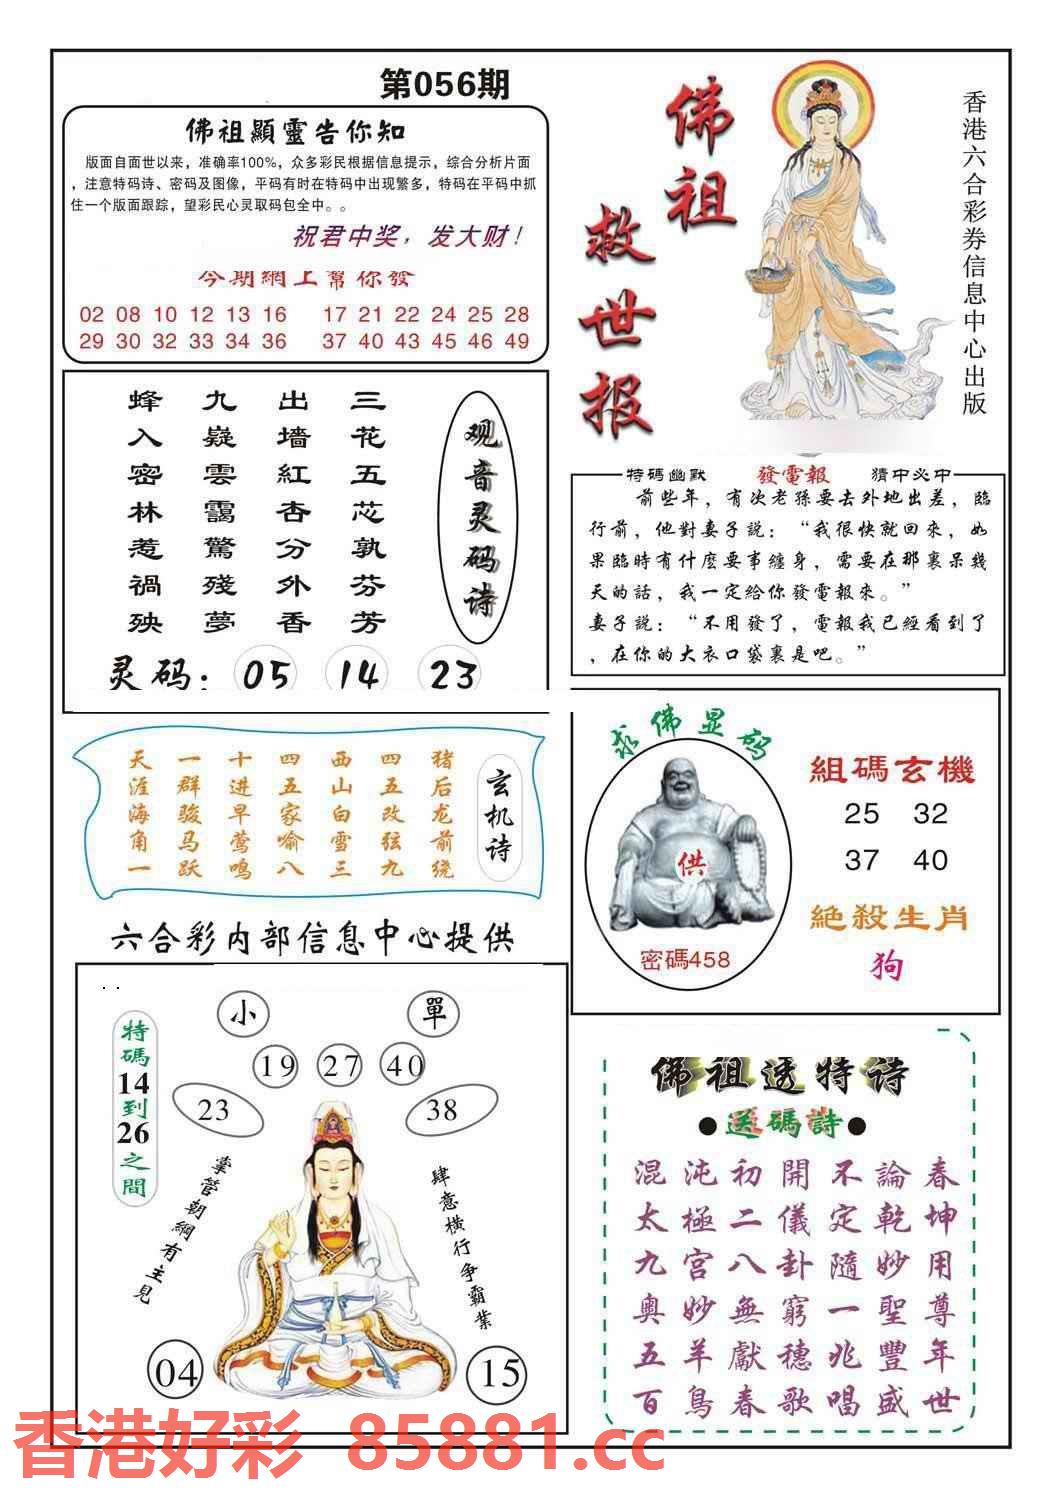 第056期
佛祖顯靈告你知
版面自面世以来，准确率100%，众多彩民根据信息提示，综合分析片面
，注意特码诗、密码及图像，平码有时在特码中出现繁多，特码在平码中抓
住一个版面跟踪，望彩民心灵取码包全中。。
祝君中奖，发大财！
今期網上幫你發
02 08 10 12 13 16 17 21 22 24 25 28
29 30 32 33 34 36 37 40 43 45 46 49
佛祖
救世报
香港六合彩券信息中心出版
观音灵码诗
三花五芯孰芬芳
出墙紅杏分外香
九嶷雲靄驚殘夢
蜂入密林惹禍殃
灵码：05 14 23
特碼幽默 發電報 猜中必中
前些年，有次老孫要去外地出差，臨
行前，他對妻子説：“我很快就回來，如
果臨時有什麽要事纏身，需要在那裏呆幾
天的話，我一定給你發電報來。”
妻子説：“不用發了，電報我已經看到了
，在你的大衣口袋裏是吧。”
玄机诗
猪后龙前绕
四五改弦九
西山白雪三
四五家喻八
十进早莺鸣
一群骏马跃
天涯海角一
求佛显码
供
密碼458
組碼玄機
25 32
37 40
絶殺生肖
狗
六合彩内部信息中心提供
特碼14到26之間
小 單
19 27 40
23 38
掌管朝綱有主見
肆意橫行争霸業
04 15
佛祖透特诗
●送碼詩●
混沌初開不論春
太極二儀定乾坤
九宫八卦隨妙用
奥妙無窮一聖尊
五羊獻穗兆豐年
百鳥春歌唱盛世
香港好彩 85881.cc